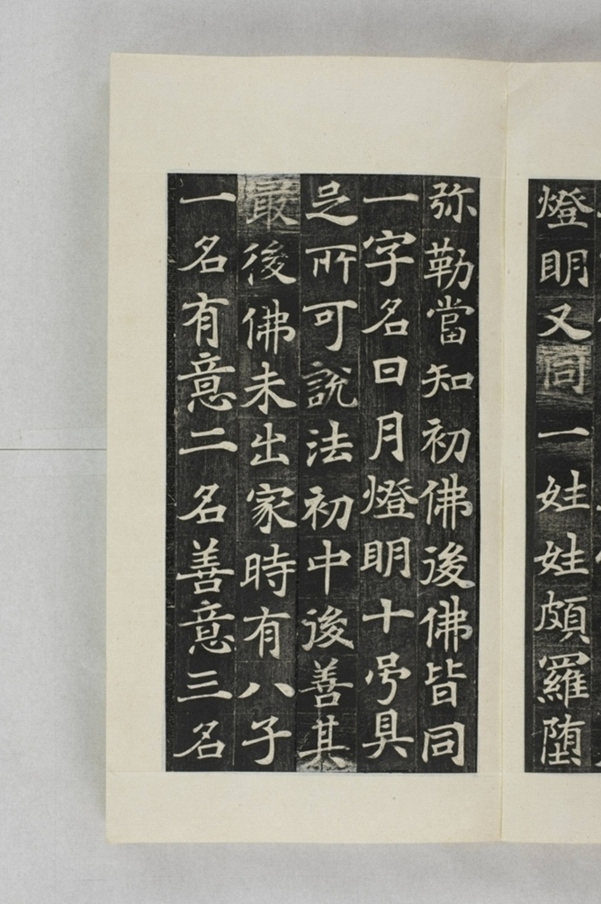 燈明又同一姓姓頗羅堕
弥勒當知初佛後佛皆同
一字名日月燈明十号具
足所可說法初中後善其
最後佛未出家時有八子
一名有意二名善意三名